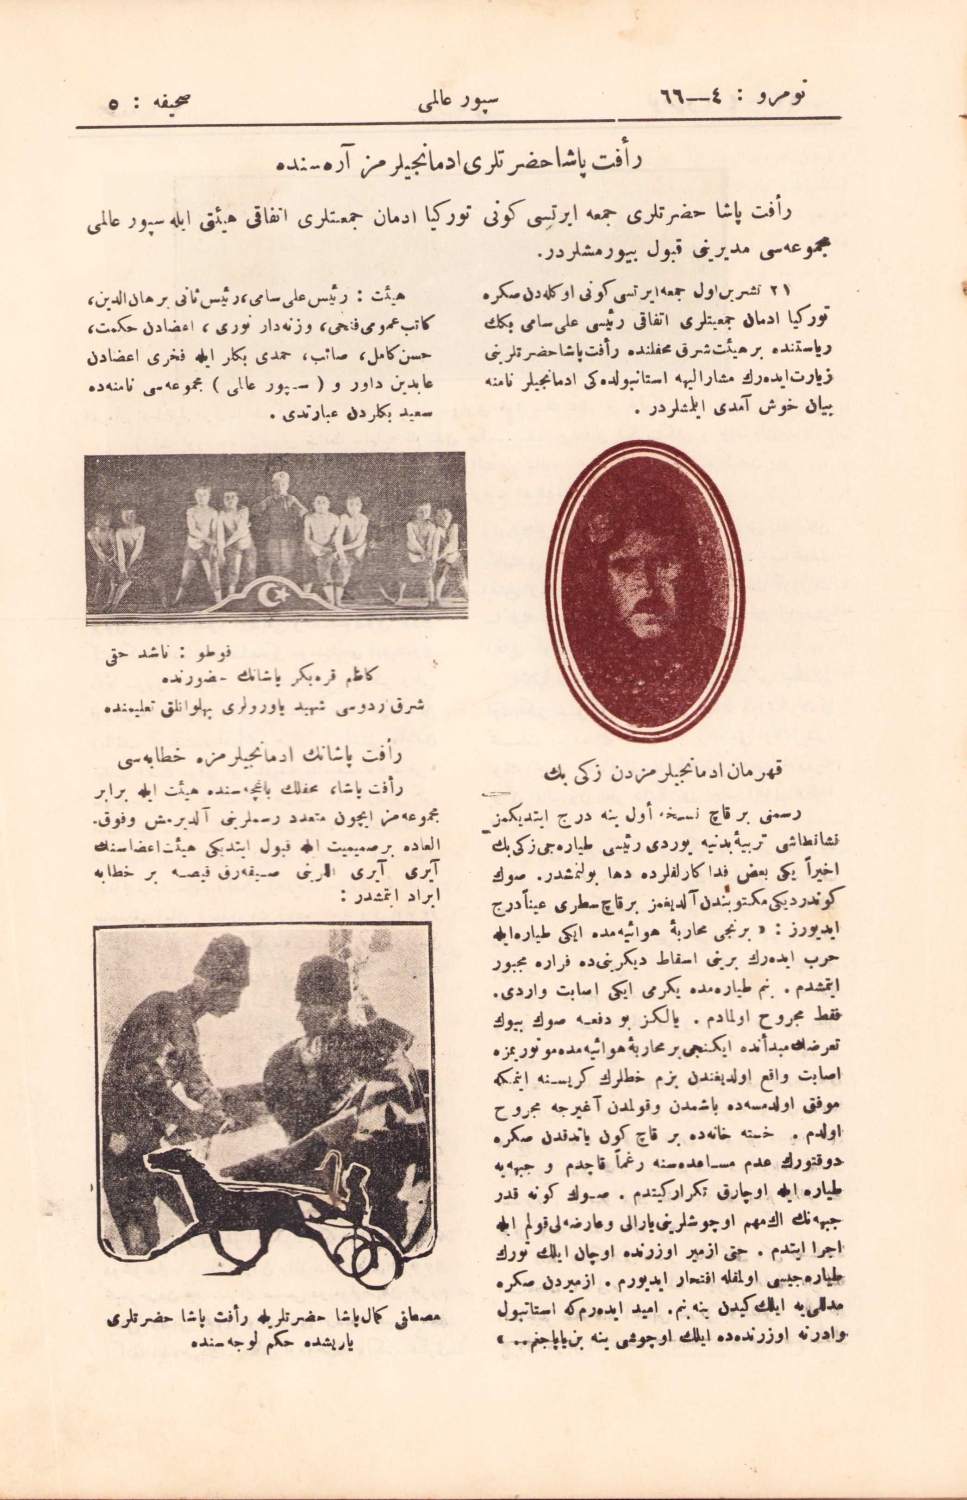 نومرو : ٤—٦٦
سپور عالمی
صحیفه : ٥
رأفت پاشا حضرتلری ادمانجیلرمز آره‌سنده
رأفت پاشا حضرتلری جمعه ایرتسی کونی تورکیا ادمان جمعیتلری اتفاقی هیئتی ایله سپور عالمی
مجموعه‌سی مدیرینی قبول بیورمشلردر.
٢١ تشرین اول جمعه ایرتسی کونی اوکله‌دن صکره
تورکیا ادمان جمعیتلری اتفاقی رئیسی علی سامی بکک
ریاستنده بر هیئت شرق محفلنده رأفت پاشا حضرتلرینی
زیارت ایده‌رك مشارالیهه استانبولده‌کی ادمانجیلر نامنه
بیان خوش آمدی ایلمشلردر .
قهرمان ادمانجیلرمزدن زکی بك
رسمنی بر قاچ نسخه أول ینه درج ایتدیکمز
نشانطاشی تربیهٔ بدنیه یوردی رئیسی طیاره‌جی زکی بك
اخیراً یکی بعض فداکارلقلرده دها بولنمشدر. صوك
کوندردیکی مکتوبندن آلدیغمز بر قاچ سطری عیناً درج
ایدیورز : « برنجی محاربهٔ هوائیه‌مده ایکی طیاره ایله
حرب ایده‌رك برینی اسقاط دیکرینی ده فراره مجبور
ایتمشدم . بنم طیاره‌مده یکرمی ایکی اصابت واردی.
فقط مجروح اولمادم . یالکز بو دفعه صوك بیوك
تعرضك مبدأنده ایکنجی بر محاربهٔ هوائیه‌مده موتوریمزه
اصابت واقع اولدیغندن بزم خطلرك کریسنه اینمکه
موفق اولدمسه‌ده باشمدن وقولمدن آغیرجه مجروح
اولدم . خسته خانه‌ده بر قاچ کون یاتدقدن صکره
دوقتورك عدم مساعده‌سنه رغماً قاچدم و جبهه‌یه
طیاره ایله اوچارق تکرار کیتدم . صوك کونه قدر
جبهه‌نك اك مهم اوچوشلرینی یارالی وعارضه‌لی قولم ایله
اجرا ایتدم . حتی ازمیر اوزرنده اوچان ایلك تورك
طیاره‌جیسی اولمقله افتخار ایدیورم . ازمیردن صکره
مدللی‌یه ایلك کیدن ینه بنم. امید ایده‌رم که استانبول
وادرنه اوزرنده‌ده ایلك اوچوشی ینه بن یاپاجغم.. »
هیئت : رئیس علی سامی، رئیس ثانی برهان الدین،
کاتب عمومی فتحی، وزنه‌دار نوری ، اعضادن حکمت،
حسن کامل، صائب، حمدی بکلر ایله فخری اعضادن
عابدین داور و ( سپور عالمی ) مجموعه‌سی نامنه‌ده
سعید بکلردن عبارتدی .
فوطو : ناشد حقی
کاظم قره‌بکر پاشانك حضورنده
شرق اردوسی شهید یاورولری پهلوانلق تعلیمنده
رأفت پاشانك ادمانجیلرمزه خطابه‌سی
رأفت پاشا، محفلك باغچه‌سنده هیئت ایله برابر
مجموعه‌مز ایچون متعدد رسملرینی آلدیرمش وفوق.
العاده بر صمیمیت ایله قبول ایتدیکی هیئت اعضاسنك
آیری آیری اللرینی صیقه‌رق قیصه بر خطابه
ایراد ایتمشدر :
مصطفی کمال پاشا حضرتلریله رأفت پاشا حضرتلری
یاریشده حکم لوجه‌سنده